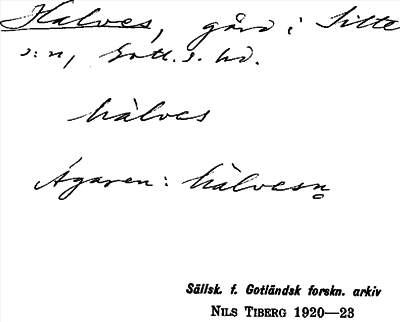 Halves, gård i Silte
s:n, Gotl. s. hd.
hàlves
Ägaren: hàlvesn̥
Sällsk. f. Gotländsk forskn. arkiv
NILS TIBERG 1920—23